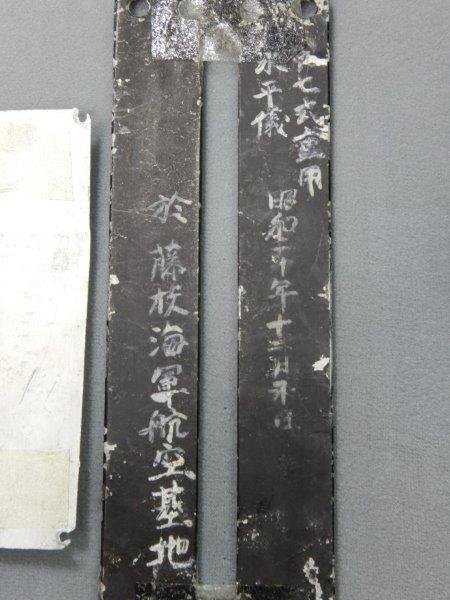 七式重用
水平儀
昭和二十年十二月日
於 藤枝海軍航空基地